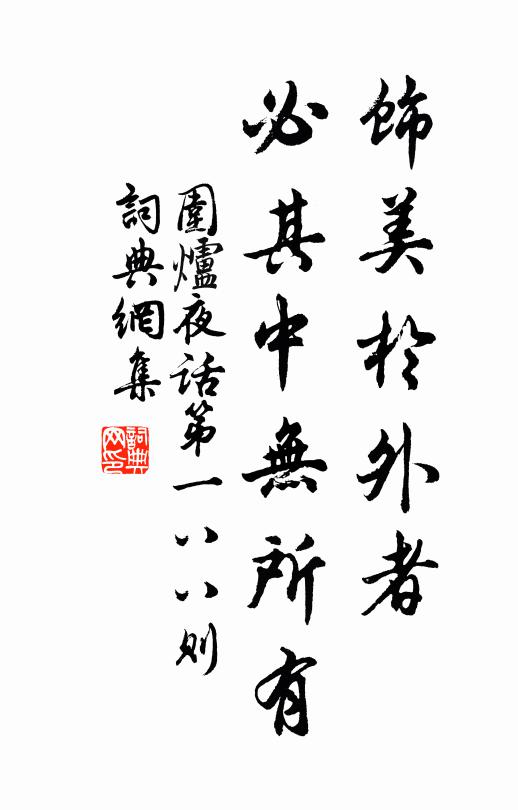 飾美於外者
必其中無所有
圍爐夜話第一八八則
詞典網集
詞典网印